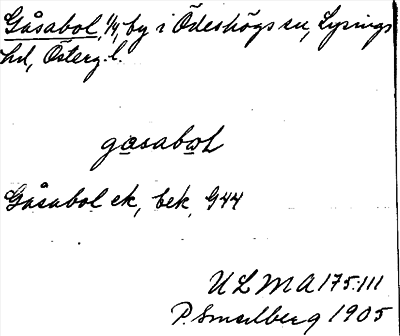 Gåsabol, 1/4, by i Ödeshögs sn, Lysings
hd, Österg. l.
gasabωL
Gåsabol ek, bek, G44
ULMA 175:111
P. Smedberg 1905